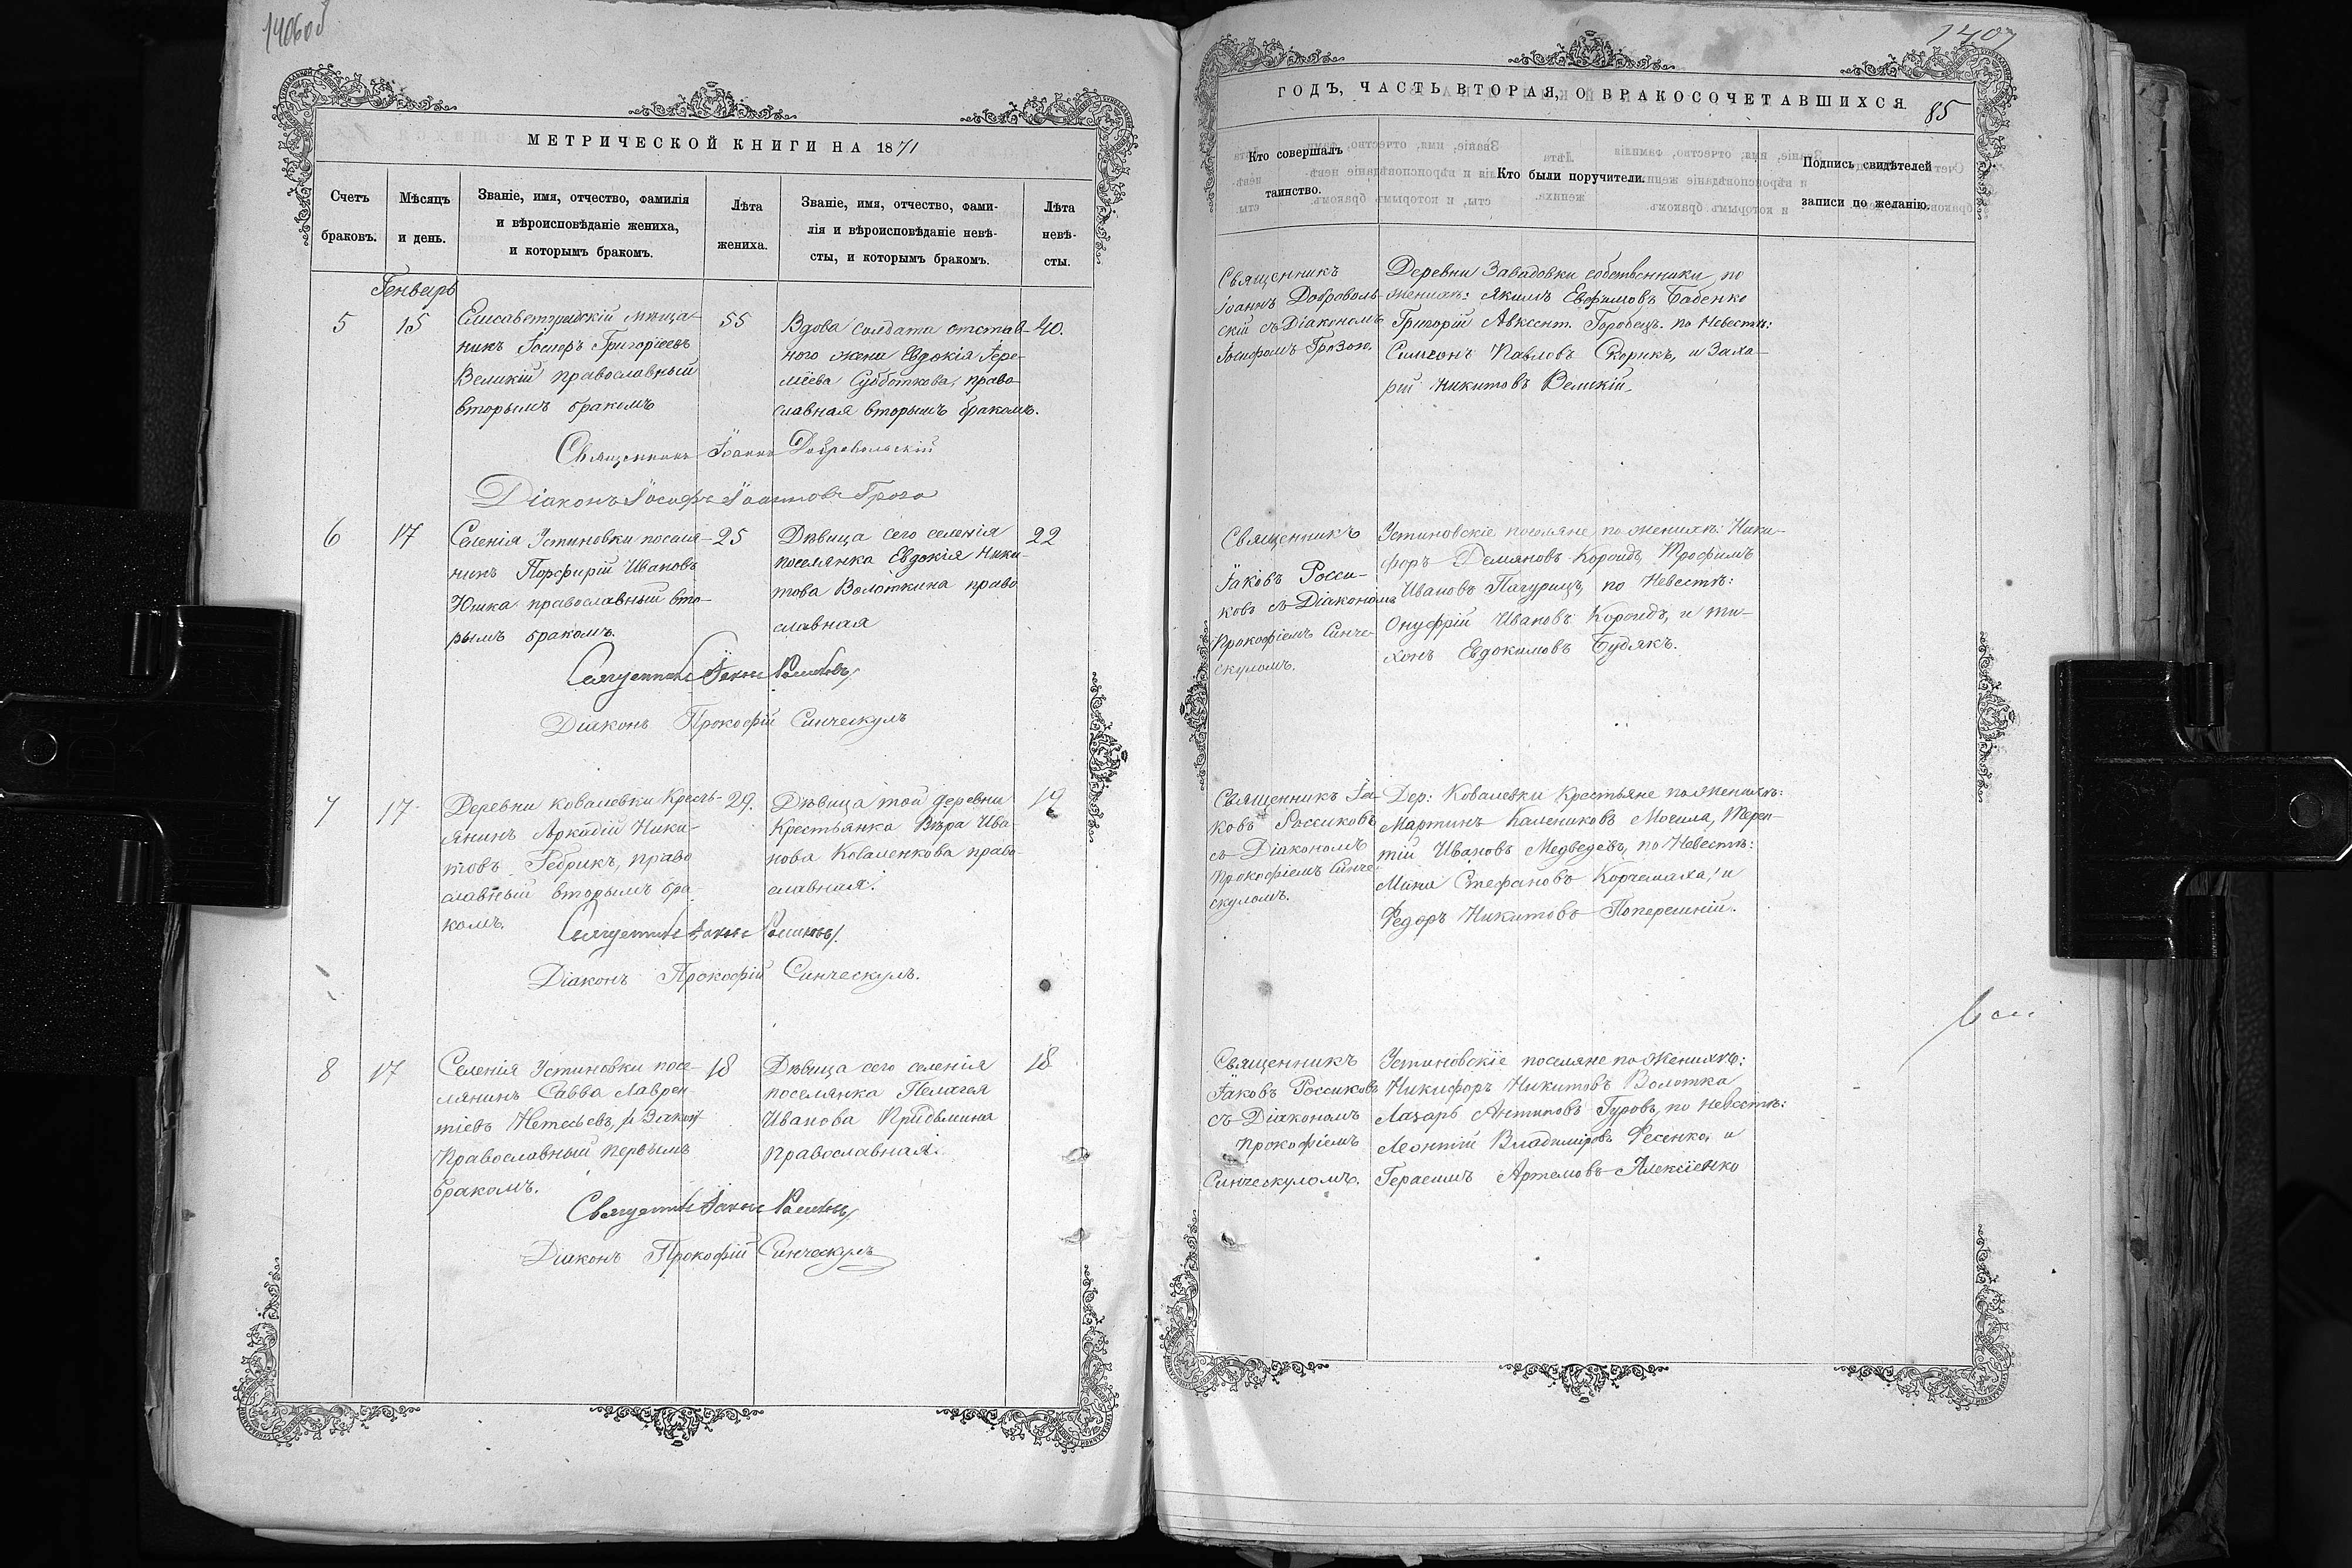 1406об
МЕТРИЧЕСКОЙ КНИГИ НА 1871
Счетъ браковъ.
Мѣсяцъ и день.
Званіе, имя, отчество, фамилія
и вѣроисповѣданіе жениха,
и которымъ бракомъ.
Лѣта жениха.
Званіе, имя, отчество, фами-
лія и вѣроисповѣданіе невѣ-
сты, и которымъ бракомъ.
Лѣта невѣ-
сты.
Генварь
5
15
Елисаветградскій мѣща-
нинъ Іосифъ Григоріевъ
Великій православный
вторымъ бракомъ
55
Вдова солдата отстав-
ного жена Евдокія Іере-
міева Субботкова, право-
славная вторымъ бракомъ.
40.
Священникъ Іоаннъ Добровольскій
Діаконъ Іосифъ Іоанновъ Гроза
6
17
Селенія Устиновки поселя-
нинъ Порфирій Ивановъ
Юшка православный вто-
рымъ бракомъ.
25
Дѣвица сего селенія
поселянка Евдокія Ники-
това Волоткина право
славная
22
Священникъ Іаковъ Россиковъ
Діаконъ Прокофій Синческулъ
7
17
Деревни Ковалевки Кресть-
янинъ Аркадій Ники-
товъ Гебрикъ, право
славный вторымъ бра-
комъ.
29.
Дѣвица той деревни
Крестьянка Вѣра Ива-
нова Коваленкова право-
славная.
19
Священникъ Іаковъ Россиковъ
Діаконъ Прокофій Синческулъ.
8
17
Селенія Устиновки посе-
лянинъ Савва Лаврен
тіевъ
Православный первымъ
бракомъ.
18
Дѣвица сего селенія
поселянка Пелагея
Иванова
Православная.
18
Священникъ Іаковъ Россиковъ
Діаконъ Прокофій Синческулъ
1407
ГОДЪ, ЧАСТЬ ВТОРАЯ, О БРАКОСОЧЕТАВШИХСЯ
85
Кто совершалъ
таинство.
Кто были поручители.
Подпись свидѣтелей
записи по желанію.
Священникъ
Іоаннъ Доброволь-
скій съ Діакономъ
Іосифомъ Грозою.
Деревни Завадовки собственники по
женихѣ: Якимъ Евфимовъ Бабенко
Григорій Авксент. Горобецъ. по Невестѣ:
Симеонъ Павловъ Скорикъ, и Заха-
рій Никитовъ Великій.
Священникъ
Іаковъ Росси-
ковъ съ Діакономъ
Прокофіемъ Синче-
скуломъ.
Устиновскіе поселяне по женихѣ: Ники-
форъ Демяновъ Короидъ, Трофимъ
Ивановъ по Невестѣ:
Онуфрій Ивановъ Короидъ, и Ти-
хонъ Евдокимовъ Будякъ.
Священникъ Іа-
ковъ Россиковъ
съ Діакономъ
Прокофіемъ Синче-
скуломъ.
Дер: Ковалевки Крестьяне по женихѣ:
Мартинъ Калениковъ Могила, Терен-
тій Ивановъ Медведевъ, по Невестѣ:
Мина Стефановъ Корчемаха, и
Федоръ Никитовъ Поперешній.
Священникъ
Іаковъ Россиковъ
съ Діакономъ
Прокофіемъ
Синческуломъ.
Устиновскіе поселяне по женихѣ:
Никифоръ Никитовъ Волотка
Лазарь Антиповъ Гуровъ, по невестѣ:
Леонтій Владиміровъ Фесенко, и
Герасимъ Артемовъ Алексіенко